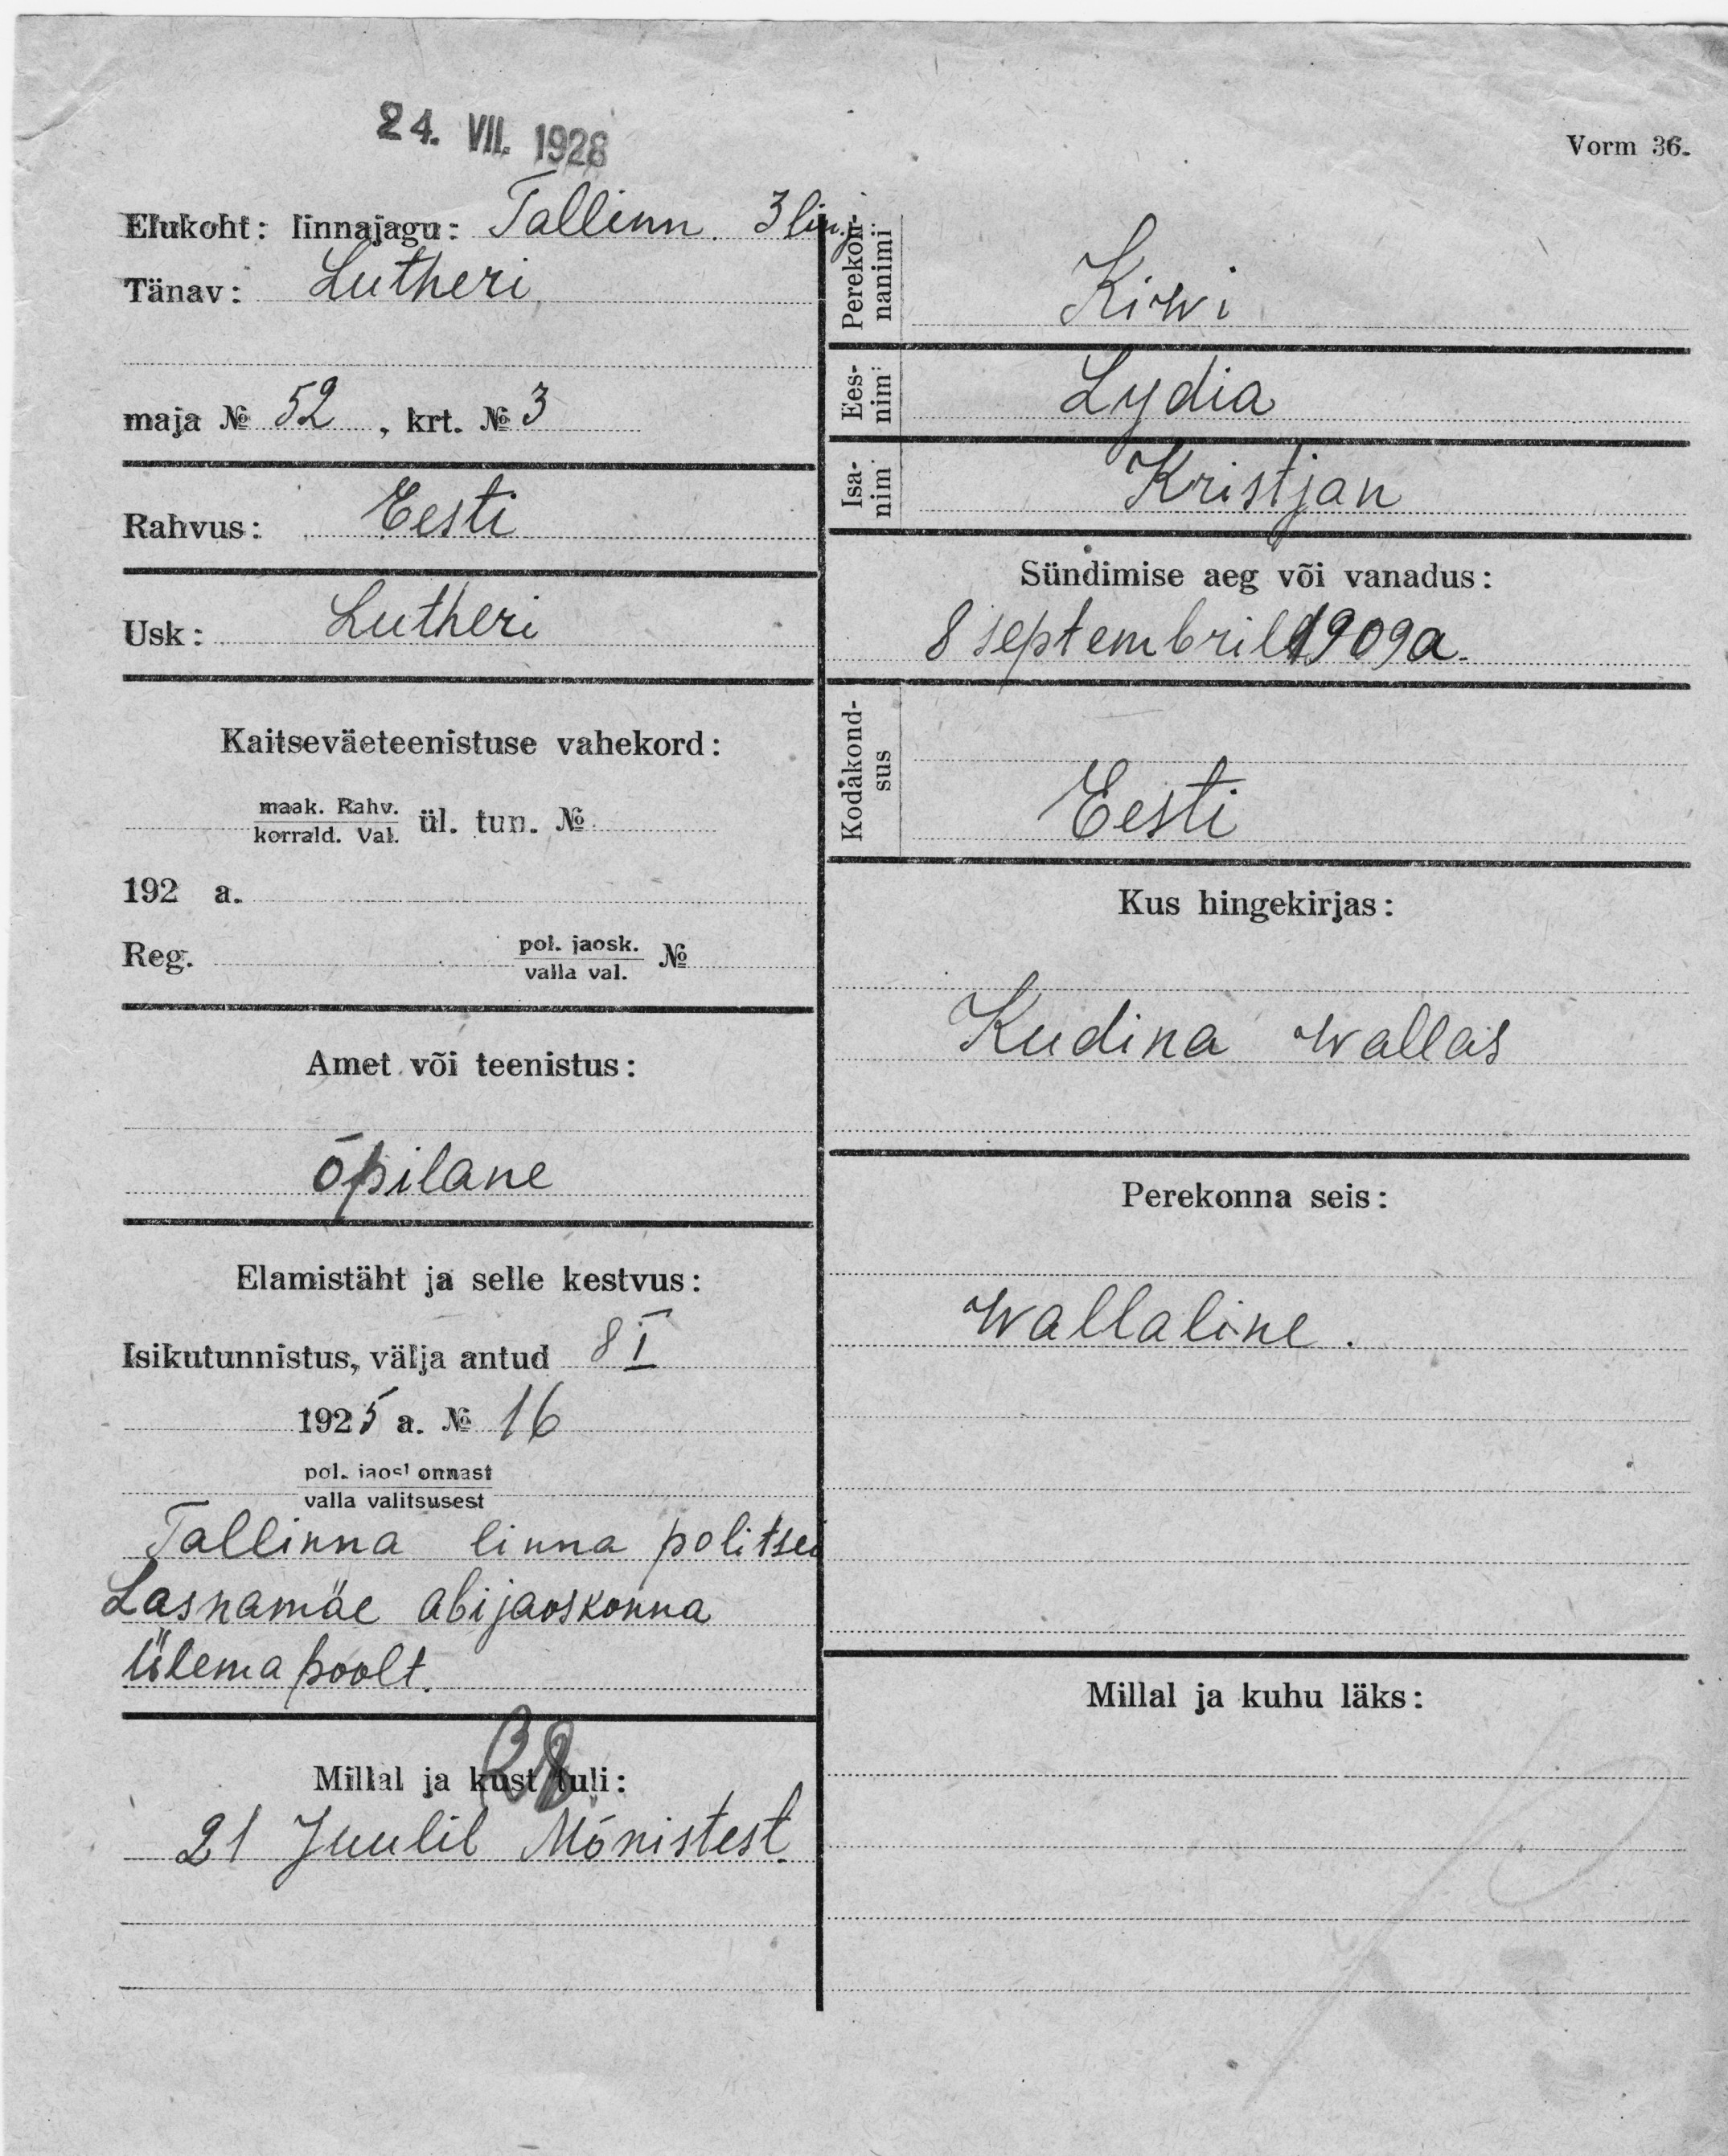 24. VII. 1928
Vorm 36.
Elukoht: linnajagu: Tallinn. 3 lin.j.
Tänav: Lutheri
maja № 52, krt. № 3
Rahvus: Eesti
Usk: Lutheri
Kaitseväeteenistuse vahekord:
maak. Rahv.
korrald. Val.
ül. tun. №
192 a.
Reg.
pol. jaosk.
valla val.
№
Amet või teenistus:
õpilane
Elamistäht ja selle kestvus:
Isikutunnistus, välja antud 8 I
1925 a. № 16
pol. jaoskonnast
valla valitsusest
Tallinna linna politsei
Lasnamäe abijaoskonna
Ülema poolt.
Millal ja kust tuli:
28
21 Juulil Mõnistest.
Perekon-
nanimi
Kiwi
Ees-
nimi
Lydia
Isa-
nimi
Kristjan
Sündimise aeg või vanadus:
8 septembril 1909 a.
Kodakond-
sus
Eesti
Kus hingekirjas:
Kudina wallas
Perekonna seis:
wallaline.
Millal ja kuhu läks: